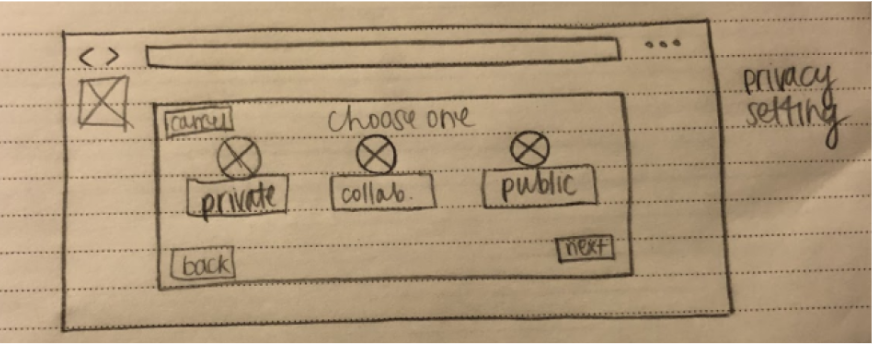 < >
...
privacy
setting
cancel
choose one
private
collab.
public
back
next